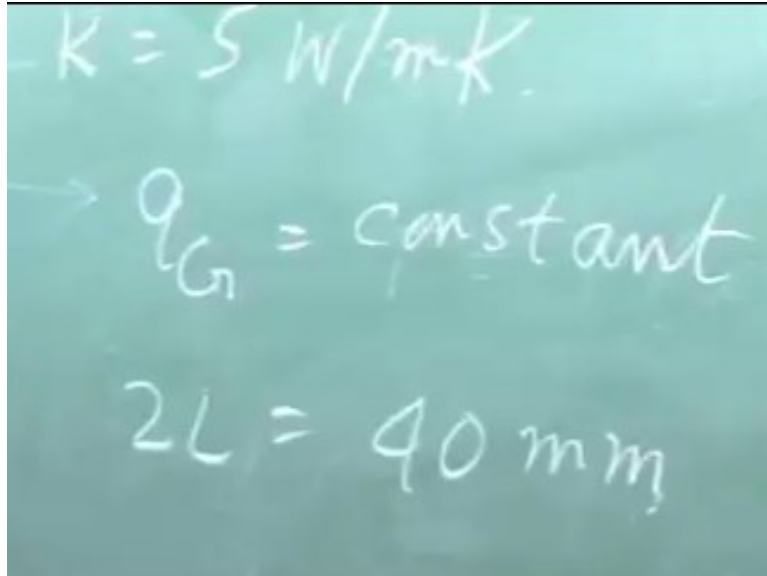 K = 5 W/mK.
→ qG = constant
2L = 40 mm